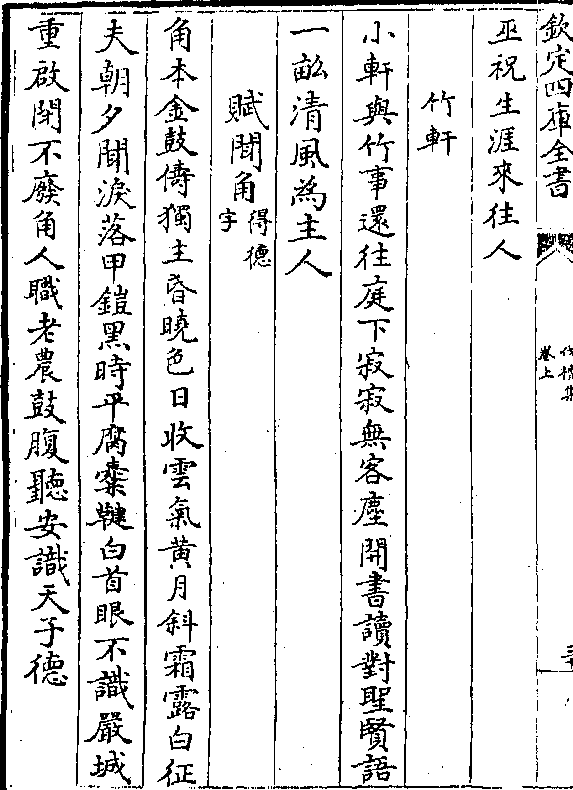 欽定四庫全書
卷上
巫祝生涯來往人
竹軒
小軒與竹事還往庭下寂寂無客塵開書讀對聖賢語
一畝清風為主人
賦聞角得德字
角本金鼓儔獨主昏曉色日收雲氣黃月斜霜露白征
夫朝夕聞淚落甲鎧黑時平腐櫜鞬白首眼不識嚴城
重啟閉不廢角人職老農鼓腹聽安識天子德